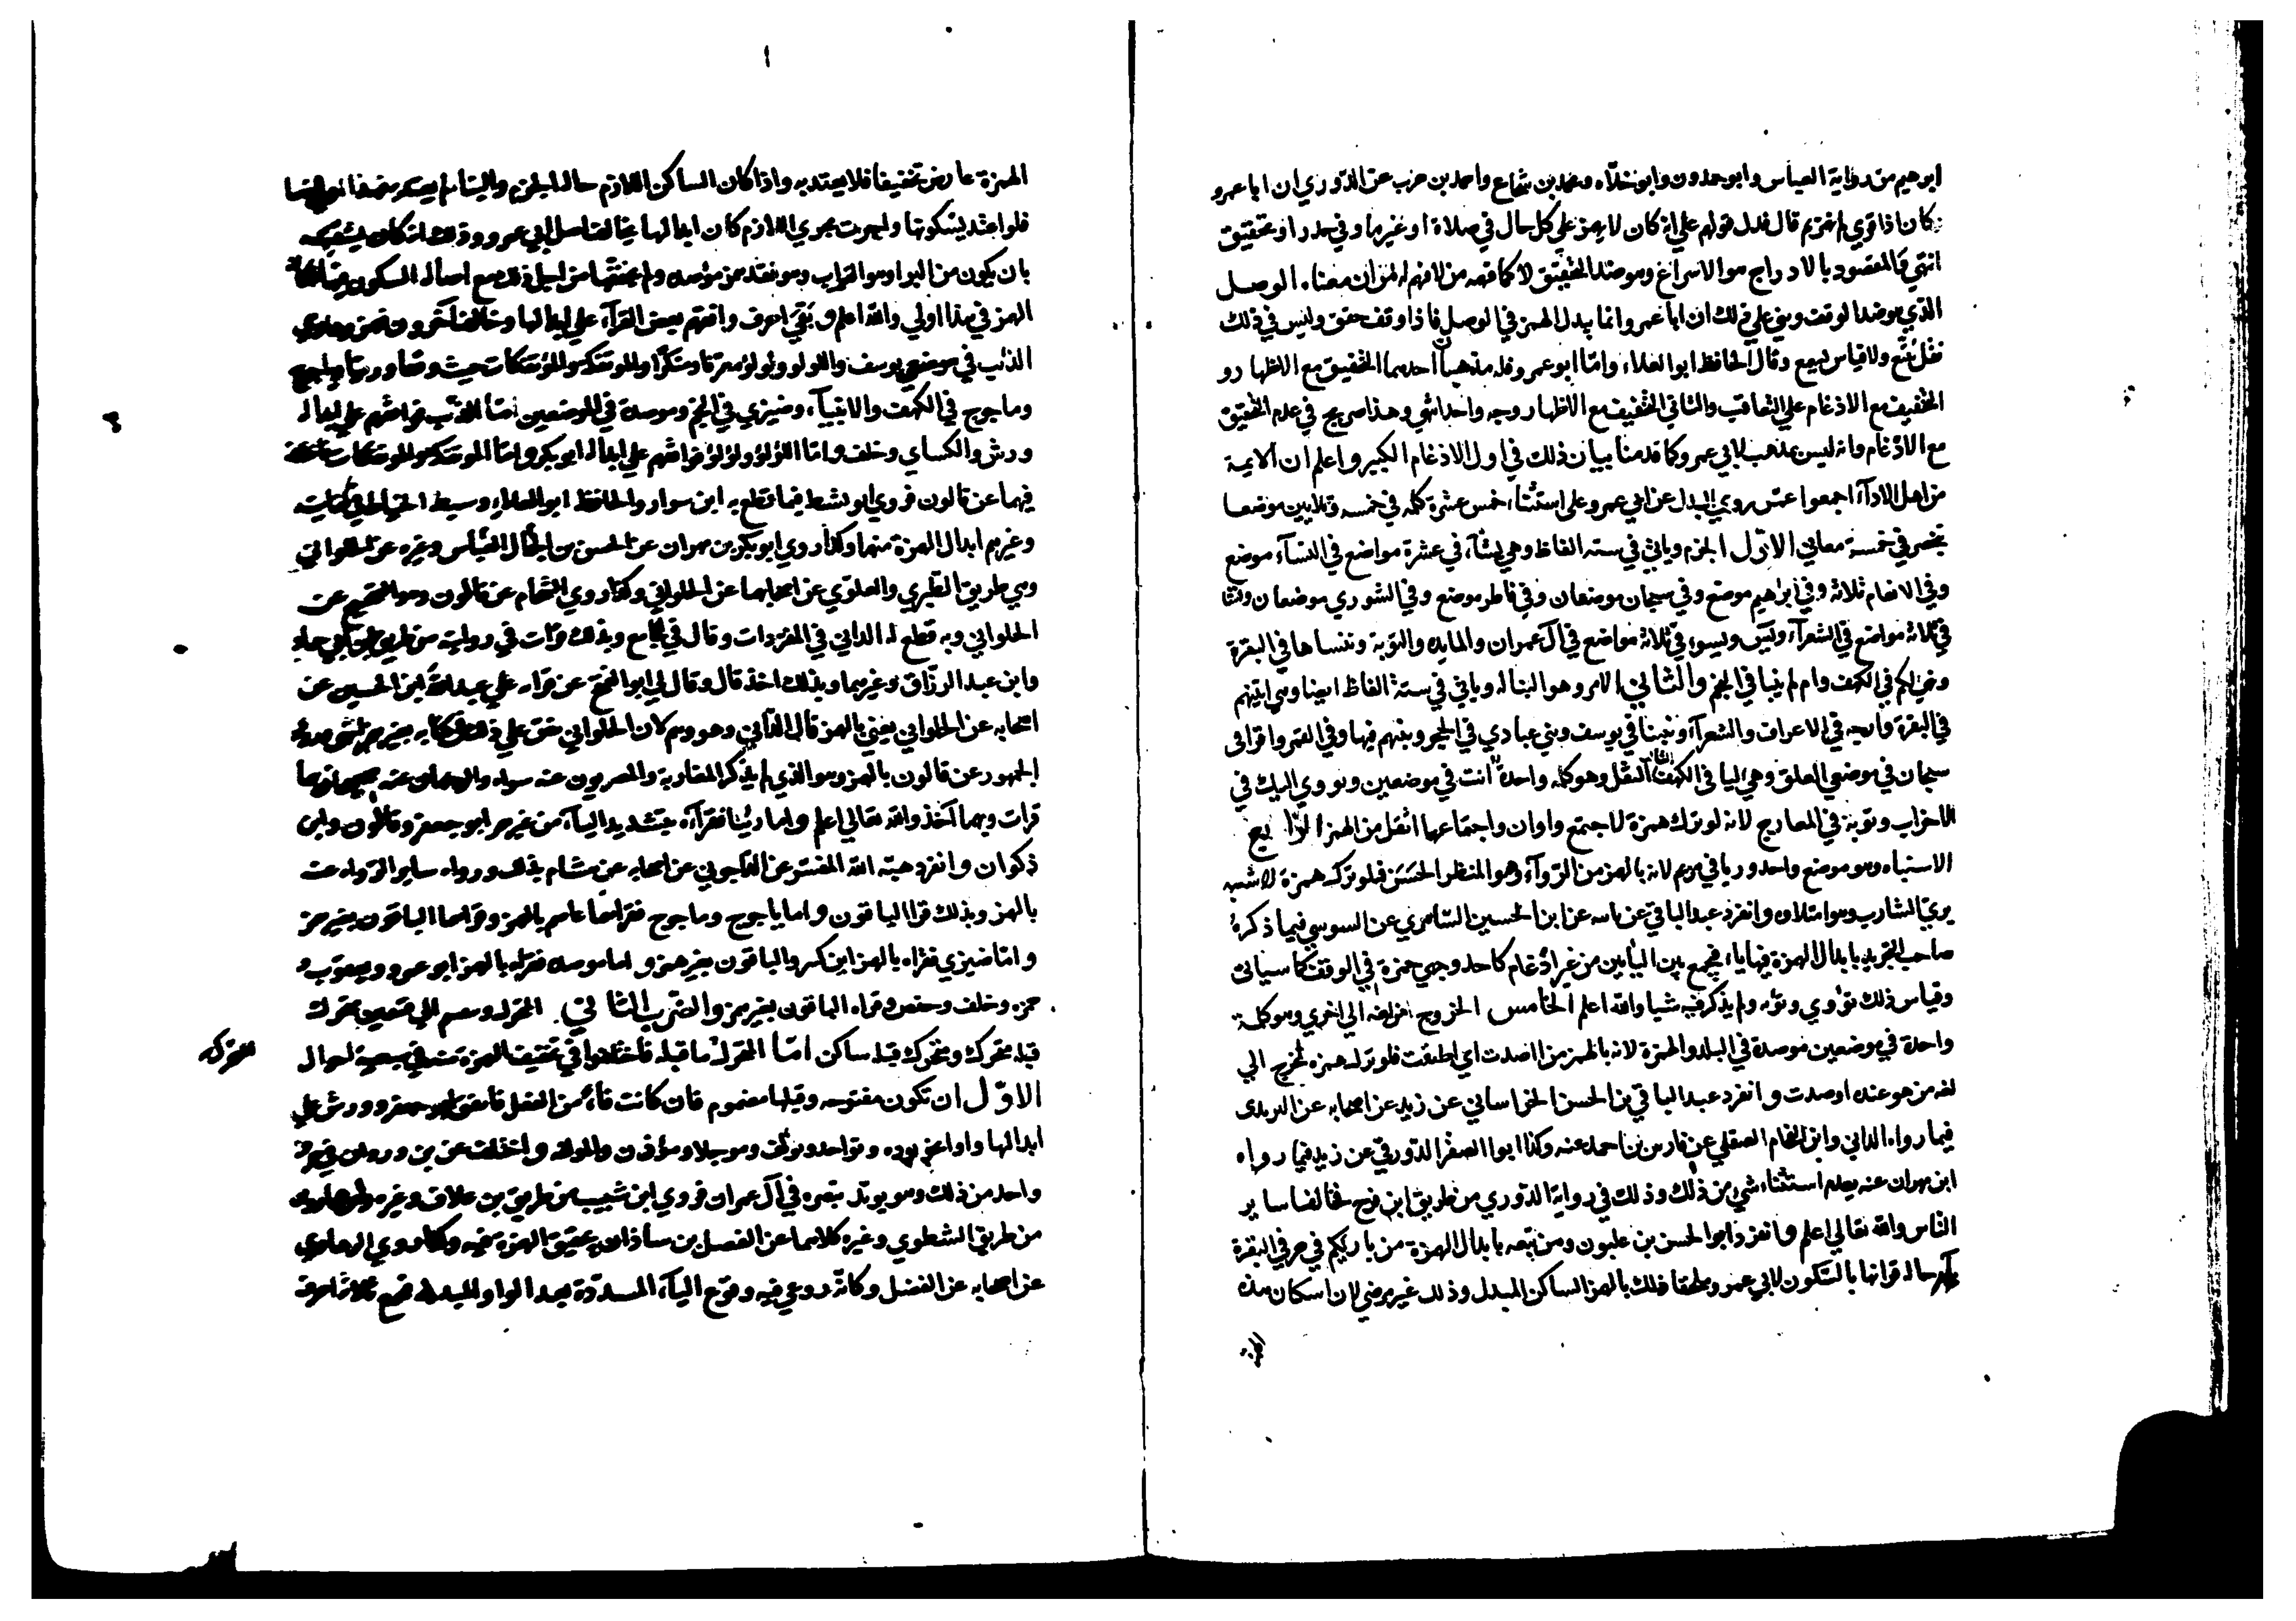 ابرهيم من رواية العباس وابو حمدون وابو خلاد ومحمد بن شجاع واحمد بن حرب عن الدوري ان ابا عمرو
كان اذا قرى لم يهمز ثم قال فدل قولهم علي انه كان لا يهمز علي كل حال في صلاة او غيرها وفي حدر او تحقيق
انتهي فالمقصود بالادراج هو الاسراع وهو ضد التحقيق لا كما فهمه من لا فهم له من ان معناه الوصل
الذي هو ضد الوقف وبني علي ذلك ان ابا عمرو انما يبدل الهمز في الوصل فاذا وقف حقق وليس في ذلك
نقل يتبع ولا قياس يسمع وقال الحافظ ابو العلاء واما ابو عمرو فله مذهبان احدهما التحقيق مع الاظهار و
التخفيف مع الادغام علي التعاقب والثاني التخفيف مع الاظهار وجه واحد انتهي وهذا صريح في عدم التحقيق
مع الادغام وانه ليس بمذهب لابي عمرو كما قدمنا بيان ذلك في اول الادغام الكبير واعلم ان الايمة
من اهل الادآء اجمعوا عمن روي البدل عن ابي عمرو علي استثنآء خمس عشرة كلمه في خمسه وثلاثين موضعا
تنحصر في خمسة معاني الاول الجزم وياتي في سته الفاظ وهي يشآء في عشرة مواضع في النسآء موضع
وفي الانعام ثلاثه وفي ابرٰهيم موضع وفي سبحان موضعان وفي فاطر موضع وفي الشوري موضعان ونشا
في ثلاثه مواضع في الشعرآء ويس وتسوء في ثلاثة مواضع في آل عمران والمايده والتوبة وننساها في البقرة
ويهيي لكم في الكهف وام لم ينبا في النجم والثاني الامر وهو البنا له وياتي في ستة الفاظ ايضا وهي انبيهم
في البقرة وارجه في الاعراف والشعرآء ونبينا في يوسف ونبي عبادي في الحجر ونبيهم فيها وفي القمر واقرا في
سبحان في موضعي العلق وهيي لنا في الكهف الثالث الثقل وهو كلمه واحدة انت في موضعين وتووي اليك في
الاحزاب وتويه في المعارج لانه لو ترك همزة لاجتمع واوان واجتماعهما اثقل من الهمز الرابع
الاشتباه وهو موضع واحد وريا في مريم لانه بالهمز من الروآء وهو المنظر الحسن فلو ترك همزة لاشتبه
بري الشارب وهو امتلاوه وانفرد عبد الباقي عن ابيه عن ابن الحسين السامري عن السوسي فيما ذكره
صاحب التجريد بابدال الهمزة فيها ياء فيجمع بين اليائين من غير ادغام كاحد وجهي حمزة في الوقف كما سياتي
وقياس ذلك تؤوي وتؤيه ولم يذكر فيه شيا والله اعلم الخامس الخروج من لغه الي اخري وهو كلمة
واحدة في موضعين موصدة في البلد والهمزة لانه بالهمز من ااصدت اي اطبقت فلو ترك همزه لخرج الي
لغه من هو عنده اوصدت وانفرد عبد الباقي بن الحسن الخراساني عن زيد عن اصحابه عن اليزيدي
فيما رواه الداني وابن الفحام الصقلي عن فارس بن احمد عنه وكذا ابو الصقر الدورقي عن زيد فيما رواه
ابن مهران عنه بعدم استثناء شيء من ذلك وذلك في رواية الدوري من طريق ابن فرح فخالفا ساير
الناس والله تعالي اعلم وانفرد ابو الحسن بن غلبون ومن تبعه بابدال الهمزة من باريكم في حرفي البقرة
حاله قرانها بالسكون لابي عمرو ملحقا ذلك بالهمز الساكن المبدل وذلك غير مرضي لان اسكان هذه
الهمزة عارض تخفيفا فلا يعتد به واذا كان الساكن اللازم حاله الجزم والبنا لم يعتد
فلو اعتد بسكونها واجريت مجري اللازم كان ابدالها مخالفا اصل ابي عمرو وذلك انه كان يشتبه
بان يكون من البرا وهو التراب وهو فقد همز موصده ولم يخففها من اجل ذلك مع اصاله السكون فيها فكان
الهمز في هذا اولي والله اعلم و بقي احرف وافقهم بعض القرآء علي ابدالها وخالف اخرون فهمزوها وهي
الذئب في موضعي يوسف واللولو ولولؤ معرفا ومنكرا والموتفكه والموتفكات حيث وقعا ورئيا وياجوج
وماجوج في الكهف والانبيآء وضيزي في النجم وموصدة في الموضعين اما الذئب فوافقهم علي ابداله
ورش والكساي وخلف واما اللؤلؤ ولؤلؤ فوافقهم علي ابداله ابو بكر واما الموتفكه والموتفكات فاختلف
فيهما عن قالون فروي ابو نشيط فيما قطع به ابن سوار والحافظ ابو العلاء وسبط الخياط في كفايته
وغيرهم ابدال الهمزة منهما وكذا روي ابو بكر بن مهران عن الحسن بن العباس الجمال وغيره عن الحلواني
وهي طريق الطبري والعلوي عن اصحابهما عن الحلواني وكذا روي الشحام عن قالون وهو الصحيح عن
الحلواني وبه قطع له الداني في المفردات وقال في الجامع وبذلك قرات في روايته من طريق ابن ابي حماد
وابن عبد الرزاق وغيرهما وبذلك اخذ قال وقال لي ابو الفتح عن قراته علي عبد الله ابن الحسين عن
اصحابه عن الحلواني يعني بالهمز قال الداني وهو وهم لان الحلواني نص علي ذلك في كتابه بغير همز
الجمهور عن قالون بالهمز وهو الذي لم يذكر المغاربة والمصريون عنه سواه والوجهان عنه صحيحان بهما
قرات وبهما آخذ والله تعالي اعلم واما رئيا فقرآءه بتشديد اليآء من غير همز ابو جعفر وقالون وابن
ذكوان وانفرد هبه الله المفسر عن الداجوني عن اصحابه عن هشام بذلك ورواه ساير الرواه عنه
بالهمز وبذلك قرا الباقون واما ياجوج وماجوج فقراهما عاصم بالهمز وقراهما الباقون بغير همز
واما ضيزي فقراه بالهمز ابن كثير والباقون بغير همز واما موصده فقراه بالهمز ابو عمرو ويعقوب و
حمزه وخلف وحفص وقراه الباقون بغير همز والضرب الثاني المتحرك وينقسم الي قسمين متحرك
قبله متحرك ومتحرك قبله ساكن اما المتحرك ما قبله فاختلفوا في تخفيف الهمزة منه في سبعة احوال
الاول ان تكون مفتوحه وقبلها مضموم فان كانت فاء من الفعل فاتفق ابو جعفر وورش علي
ابدالها واوا نحو يوده ويواخد ويولف وموجلا وموذن والمولفه واختلف عن بن وردان في حرف
واحد من ذلك وهو يويد بنصره في آل عمران فروي ابن شبيب من طريق بن علاف وغيره
من طريق الشطوي وغيره كلاهما عن الفضل بن شاذان تحقيق الهمزة فيه وكذا روي الرهاوي
عن اصحابه عن الفضل وكانه روعي فيه وقوع اليآء المسددة بعد الواو المبدله فيجتمع ثلاثة احرف